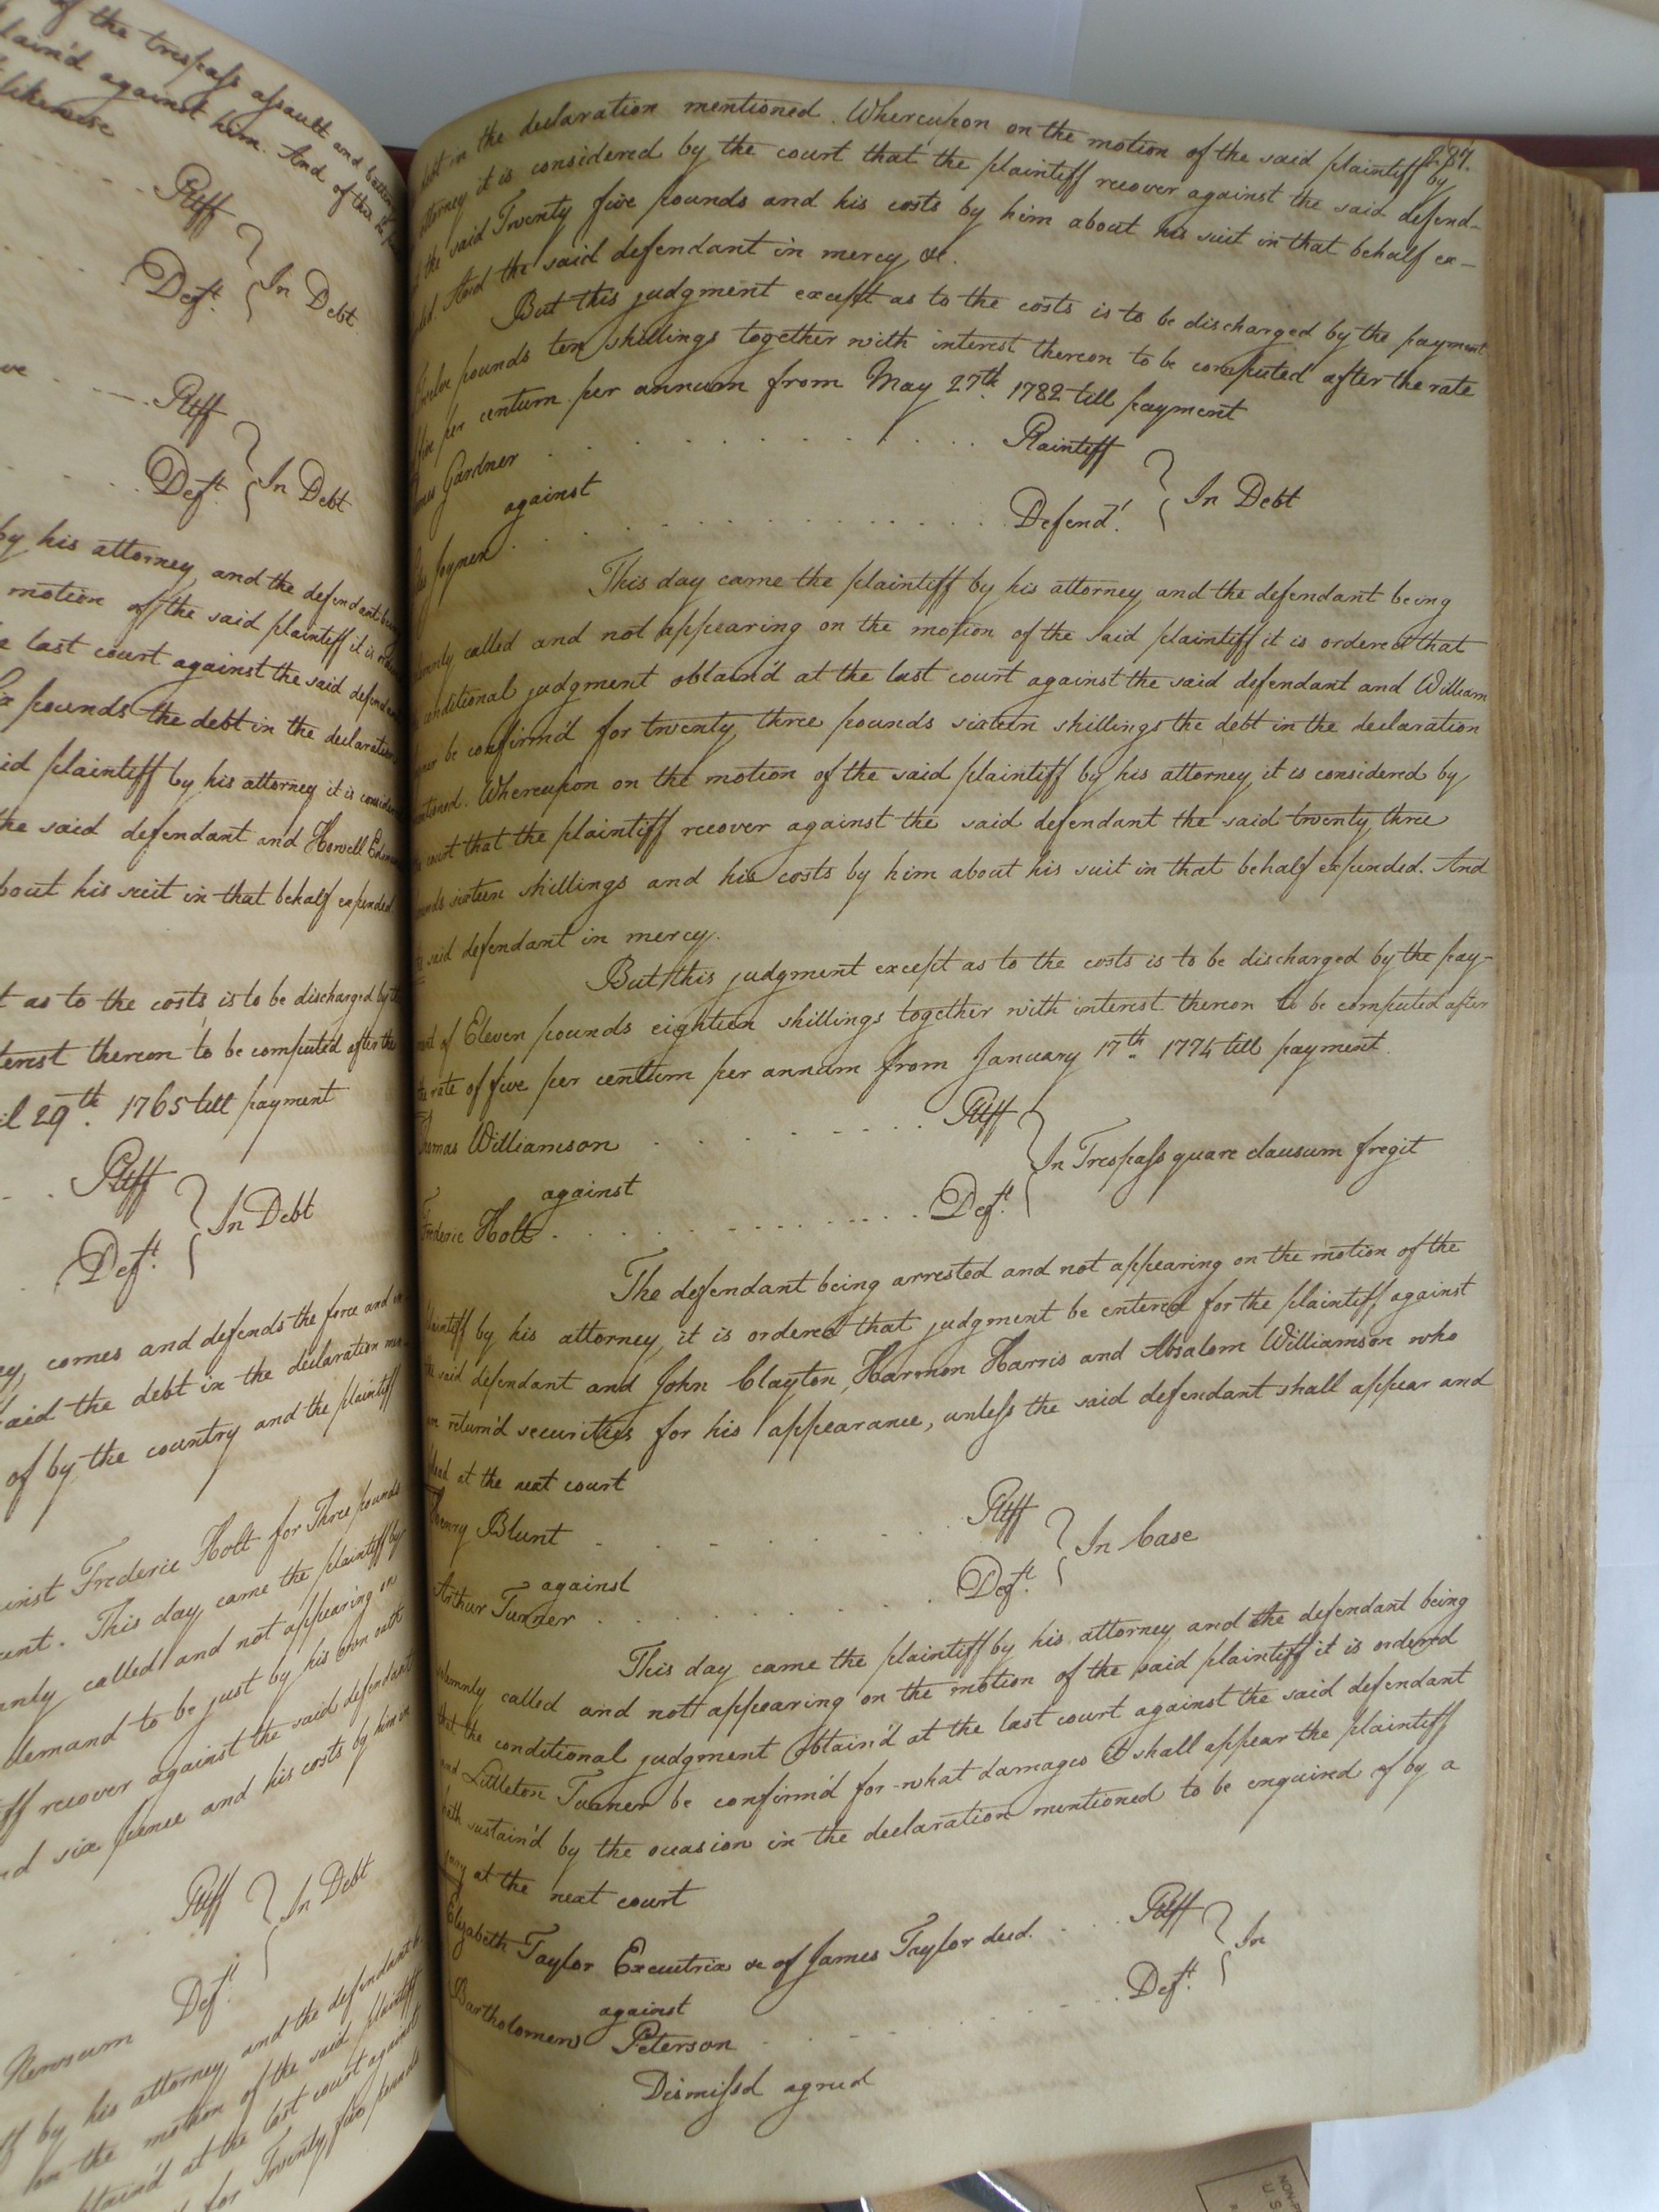 of the trespass assault and
plain'd against him. And of this the
likewise
Pltff
In Debt
Deft.
Pltff
In Debt
Deft.
by his attorney, and the defendant being
motion of the said plaintiff it is
last court against the said defendant
pounds the debt in the declaration
plaintiff by his attorney it is
the said defendant and Howell
his suit in that behalf expended.
as to the costs is to be discharged by
thereon to be computed after the
29th. 1765 till payment
Pltff
In Debt
Deft.
comes and defends the force and
the debt in the declaration
of by the country and the plaintiff
Frederic Holt for Three pounds
This day came the plaintiff by
called and not appearing on
demand to be just by his own oath
recover against the said defendant
six pence and his costs by him in
Pltff
In Debt
Deft.
Newsum
by his attorney, and the defendant
on the motion of the said plaintiff
at the last court against
for Twenty five pounds
237.
debt in the declaration mentioned. Whereupon on the motion of the said plaintiff by
attorney it is considered by the court that the plaintiff recover against the said defend-
the said Twenty five pounds and his costs by him about his suit in that behalf ex-
And the said defendant in mercy &c.
But this judgment except as to the costs is to be discharged by the payment
Twelve pounds ten shillings together with interest thereon to be computed after the rate
five per centum per annum from May 27th. 1782 till payment
Gardner . . . Plaintiff
against
In Debt
Joyner . . . Defend.t
This day came the plaintiff by his attorney and the defendant being
called and not appearing on the motion of the said plaintiff it is ordered that
conditional judgment obtain'd at the last court against the said defendant and William
be confirm'd for twenty three pounds sixteen shillings the debt in the declaration
mentioned. Whereupon on the motion of the said plaintiff by his attorney it is considered by
court that the plaintiff recover against the said defendant the said twenty three
pounds sixteen shillings and his costs by him about his suit in that behalf expended. And
the said defendant in mercy.
But this judgment except as to the costs is to be discharged by the pay-
ment of Eleven pounds eighteen shillings together with interest thereon to be computed after
the rate of five per centum per annum from January 17th. 1774 till payment.
Thomas Williamson . . . Pltff
against
In Trespass quare clausum fregit
Frederic Holt . . . Deft.
The defendant being arrested and not appearing on the motion of the
plaintiff by his attorney, it is ordered that judgment be entered for the plaintiff against
the said defendant and John Clayton, Harmon Harris and Absalom Williamson who
are return'd securities for his appearance, unless the said defendant shall appear and
plead at the next court
Henry Blunt . . . Pltff
against
In Case
Arthur Turner . . . Deft.
This day came the plaintiff by his attorney and the defendant being
solemnly called and not appearing on the motion of the said plaintiff it is ordered
that the conditional judgment obtain'd at the last court against the said defendant
and Littleton Turner be confirm'd for what damages it shall appear the plaintiff
hath sustain'd by the occasion in the declaration mentioned to be enquired of by a
jury at the next court
Elizabeth Taylor Executrix &c of James Taylor decd. . . . Pltff
against
In
Bartholomew Peterson . . . Deft.
Dismissd agreed